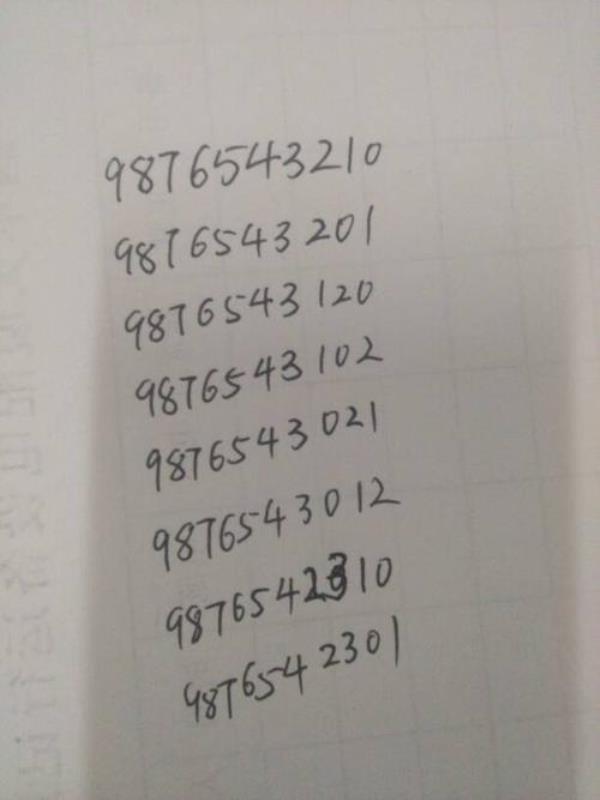 9876543210
9876543201
9876543120
9876543102
9876543021
9876543012
9876542310
9876542301